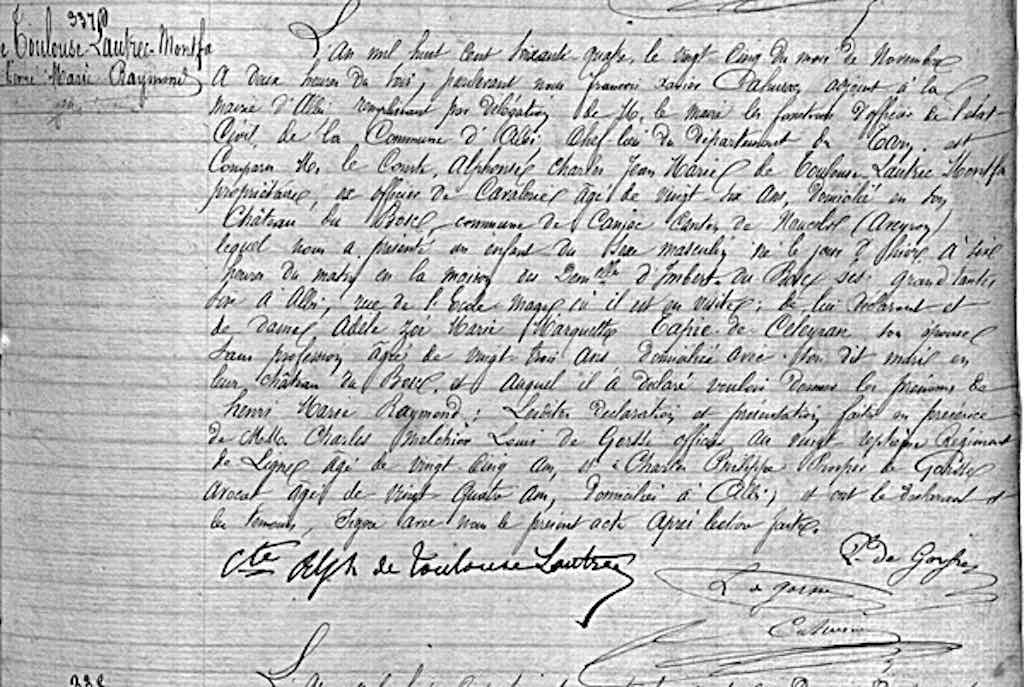 337
de Toulouse Lautrec-Montfa
Henri Marie Raymond
L'an mil huit cent soixante quatre, le vingt cinq du mois de Novembre
A deux heures du soir, pardevant nous françois xavier adjoint à la
mairie d'Albi remplissant par délégation de M. le maire les fonctions d'officier de l'état
Civil de la Commune d'Albi chef-lieu du département du Tarn. est
Comparu M. le Comte, Alphonse Charles Jean Marie de Toulouse Lautrec Montfa
propriétaire, ex officier de Cavalerie âgé de vingt six ans, domicilié en son
Château du Bosc, commune de Camjac Canton de Naucelle (Aveyron)
lequel nous a présenté un enfant du sexe masculin né le jour d'hier à six
heures du matin en la maison des Demelles d'Imbert du Bosc ses grand'tantes
sise à Albi, rue de l'école mage où il est en visite; de lui déclarant et
de dame Adèle Zoé Marie Marquette Tapié de Celeyran son épouse
sans profession âgée de vingt trois ans domiciliée avec son dit mari en
leur château du Bosc. et auquel il a déclaré vouloir donner les prénoms de
henri Marie Raymond; Lesdites déclaration et présentation faites en présence
de MM. Charles Melchior Louis de Gorsse officier au vingt septième Régiment
de Ligne âgé de vingt cinq ans, et Charles Philippe Prosper de Gorsse
Avocat âgé de vingt quatre ans, domiciliés à Albi, et ont le déclarant et
les témoins, signé avec nous le présent acte Après lecture faite.
Cte Alph de Toulouse Lautrec
Pr de Gorsse
L de gorsse
338